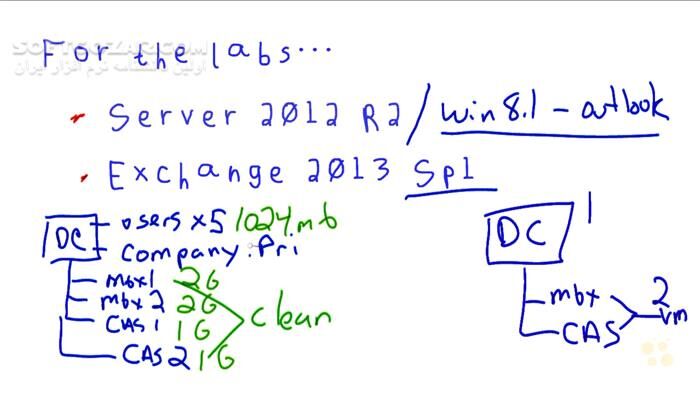 For the labs...
SOFTGOZAR.COM
اولین دانشنامه نرم افزار ایران
• Server 2012 R2 / win 8.1 - outlook
• Exchange 2013 Sp1
DC
users x5 1024mb
company.Pri
mbx1 2G
mbx2 2G
CAS1 1G
CAS2 1G
clean
DC 1
mbx
CAS
2
vm